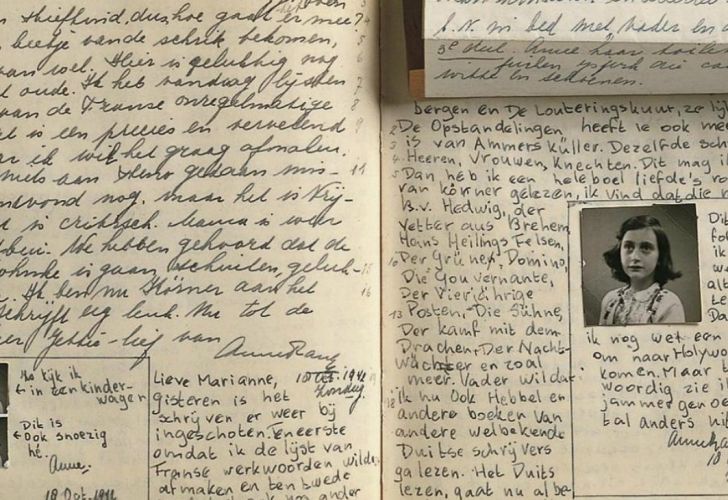 Hiefhond, dus, hoe gaat er mee?
beetje van de schrik bekomen,
van wel. Hier is gelukkig nog
oude. Ik heb vandaag lijsten
van de Franse onregelmatige
is een precies en vervelend
ik wil het graag afmalen.
niets aan Steno gedaan mis-
nog, maar het is Vrij-
is critisch. Mama is weer
We hebben gehoord dat de
is gaan schuilen, geluk-
Ik ben nu Körner aan het
schrijft erg leuk. Nu tot de
Jettie-lief van
Anne Frank
Zo kijk ik
in een kinder-
wagen
Dit is
ook snoezig
hé.
Anne.
18 Oct. 1942
18 Oct. 1942
Zondag
Lieve Marianne,
gisteren is het
schrijven er weer bij
ingeschoten. Ten eerste
omdat ik de lijst van
Franse werkwoorden wilde
afmaken en ten twede
ook nog ander
in bed met vader en
3e deel. Anne haar
witte en schoenen.
bergen en De Louteringskuur, ze lij
De Opstandelingen heeft ie ook mee
is van Ammers küller. Dezelfde sch
Heeren, Vrouwen, Knechten. Dit mag i
Dan heb ik een heleboel liefde's ro
van körner gelezen, ik vind dat die
B.v. Hedwig, der
Vetter aus Brehem,
Hans Heilings Felsen,
Der Grüner Domino,
Die Gouvernante,
Der Vierjährige
Posten, Die Sühne,
Der kamf mit dem
Drachen, Der Nacht-
wächter en zoal
meer. Vader wil dat
ik nu ook Hebbel en
andere boeken van
andere welbekende
Duitse schrijvers
ga lezen. Het Duits
lezen, gaat nu al be-
Di
fot
ik
wo
alt
to
Da
ik nog wel een
om naar Holywo
komen. Maar t
woordig zie i
jammer genoe
tal anders ui
Annefrank
18